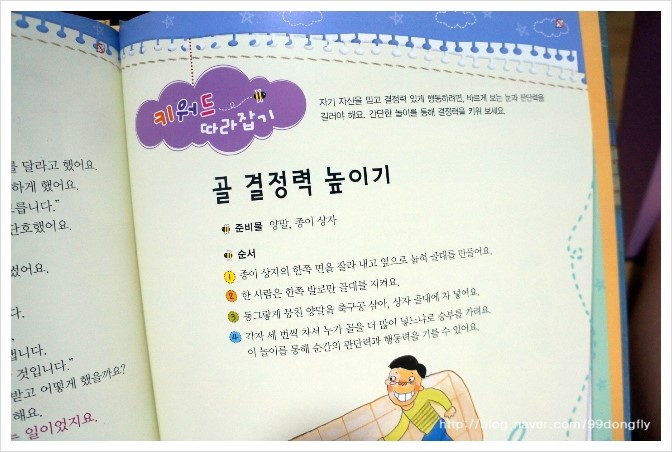 를 달라고 했어요.
하게 했어요.
릅니다."
단호했어요.
했어요.
다.
니다.
것입니다."
받고 어떻게 했을까요?
해요.
= 일이었지요.
키워드
따라잡기
자기 자신을 믿고 결정력 있게 행동하려면, 바르게 보는 눈과 판단력을
길러야 해요. 간단한 놀이를 통해 결정력을 키워 보세요.
골 결정력 높이기
준비물 양말, 종이 상자
순서
1 종이 상자의 한쪽 면을 잘라 내고 옆으로 눕혀 골대를 만들어요.
2 한 사람은 한쪽 발로만 골대를 지켜요.
3 동그랗게 뭉친 양말을 축구공 삼아, 상자 골대에 차 넣어요.
4 각자 세 번씩 차서 누가 골을 더 많이 넣느냐로 승부를 가려요.
이 놀이를 통해 순간의 판단력과 행동력을 기를 수 있어요.
http://blog.naver.com/99dongfly